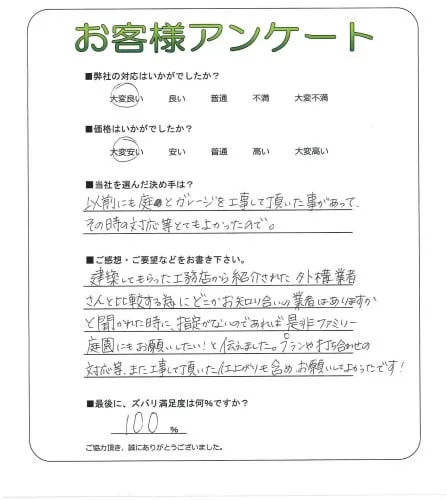 お客様アンケート
■弊社の対応はいかがでしたか?
大変良い 良い 普通 不満 大変不満
■価格はいかがでしたか?
大変安い 安い 普通 高い 大変高い
■当社を選んだ決め手は?
以前にも庭とガレージを工事して頂いた事があって、
その時の対応等とてもよかったので。
■ご感想・ご要望などをお書き下さい。
建築してもらった工務店から紹介された外構業者
さんと比較する為にどこかお知り合いの業者はありますか
と聞かれた時に、指定がないのであれば是非ファミリー
庭園にもお願いしたい!と伝えました。プランや打ち合わせの
対応等、また工事して頂いた仕上がりも含め、お願いしてよかったです!
■最後に、ズバリ満足度は何%ですか?
100 %
ご協力頂き、誠にありがとうございました。